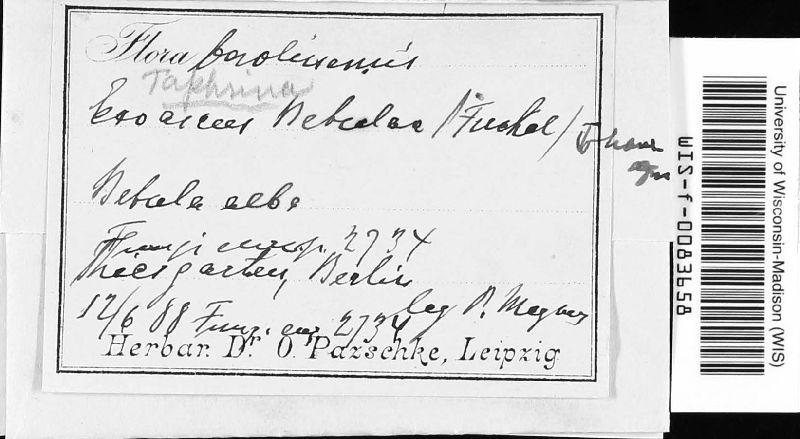 Flora berolinensis
Taphrina
Exoascus Betulae (Fuckel)
Betula alba
Fungi europ. 2734
Thiergarten, Berlin
12/6 88 leg P. Magnus
Fung. eur. 2734
Herbar. Dr. O. Pazschke, Leipzig
University of Wisconsin-Madison (WIS)
WIS-f-0083658